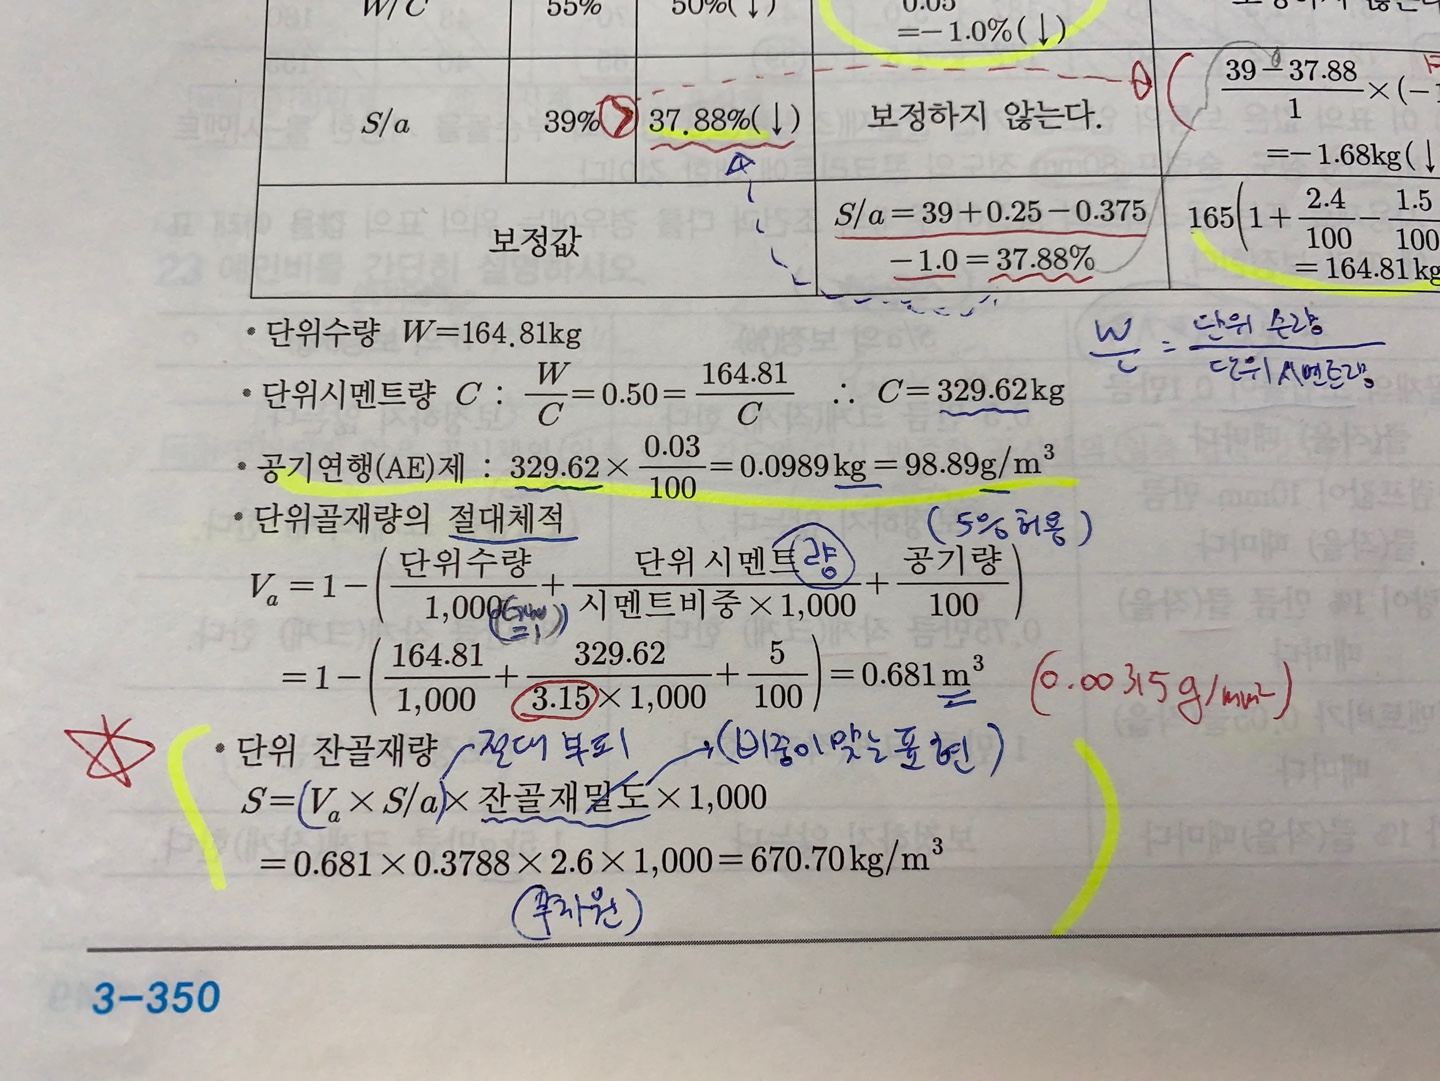 W/C 55% 50%(↓) 0.05
=-1.0%(↓)
S/a 39% 37.88%(↓) 보정하지 않는다. (39-37.88)/1×(-1
=-1.68kg(↓
보정값 S/a=39+0.25-0.375 165(1+2.4/100-1.5/100
-1.0=37.88% =164.81kg
• 단위수량 W=164.81kg
W/C = 단위 수량/단위 시멘트량
• 단위시멘트량 C : W/C=0.50=164.81/C ∴ C=329.62kg
• 공기연행(AE)제 : 329.62×0.03/100=0.0989kg=98.89g/m³
• 단위골재량의 절대체적 (5% 허용)
Vₐ=1-(단위수량/1,000+단위시멘트량/(시멘트비중×1,000)+공기량/100)
=1-(164.81/1,000+329.62/(3.15×1,000)+5/100)=0.681m³ (0.00315g/mm²)
• 단위 잔골재량 절대 부피 →(비중이 맞는 표현)
S=(Vₐ×S/a)×잔골재밀도×1,000
=0.681×0.3788×2.6×1,000=670.70kg/m³
(무차원)
3-350